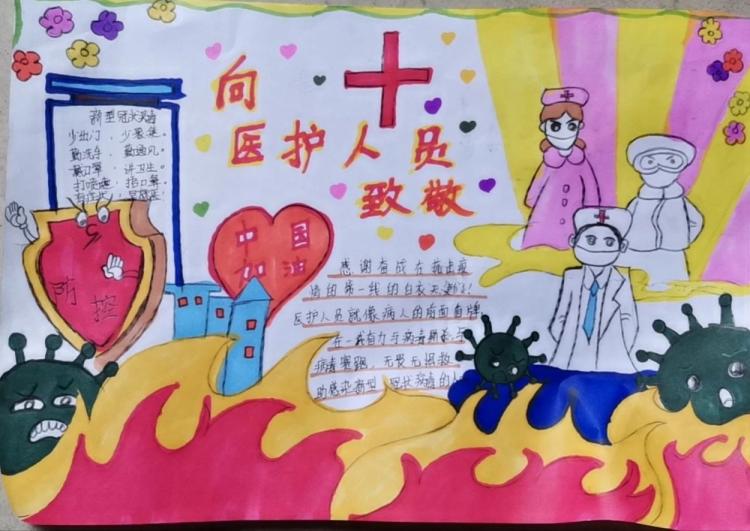 向
医护人员
致敬
新型冠状病毒
少出门，少聚集。
勤洗手，勤通风。
戴口罩，讲卫生。
打喷嚏，捂口鼻。
防控
中国
加油
感谢奋战在抗击疫
情的第一线的白衣天使们！
医护人员就像病人的后面盾牌
在一
病毒赛跑，无畏无惧救
助感染新型 冠状病毒的人